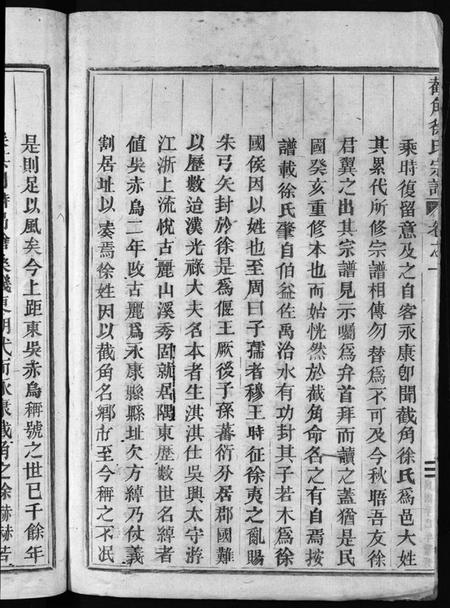 截角徐氏宗譜 卷之一
乘時復留意及之自客永康卽聞截角徐氏爲邑大姓
其累代所修宗譜相傳勿替爲不可及今秋晤吾友徐
君翼之出其宗譜見示囑爲弁首拜而讀之蓋猶是民
國癸亥重修本也而始恍然於截角命名之有自焉按
譜載徐氏肇自伯益佐禹治水有功封其子若木爲徐
國侯因以姓也至周曰子孺者穆王時征徐夷之亂賜
朱弓矢封於徐是爲偃王厥後子孫蕃衍分居郡國難
以歷數迨漢光祿大夫名本者生淇淇仕吳興太守游
江浙上流悅古麗山溪秀固就居隅東歷數世名綽者
値吳赤烏二年改古麗爲永康縣縣址欠方綽乃仗義
割居址以袤焉徐姓因以截角名鄉市至今稱之不泯
是則足以風矣今上距東吳赤烏稱號之世已千餘年